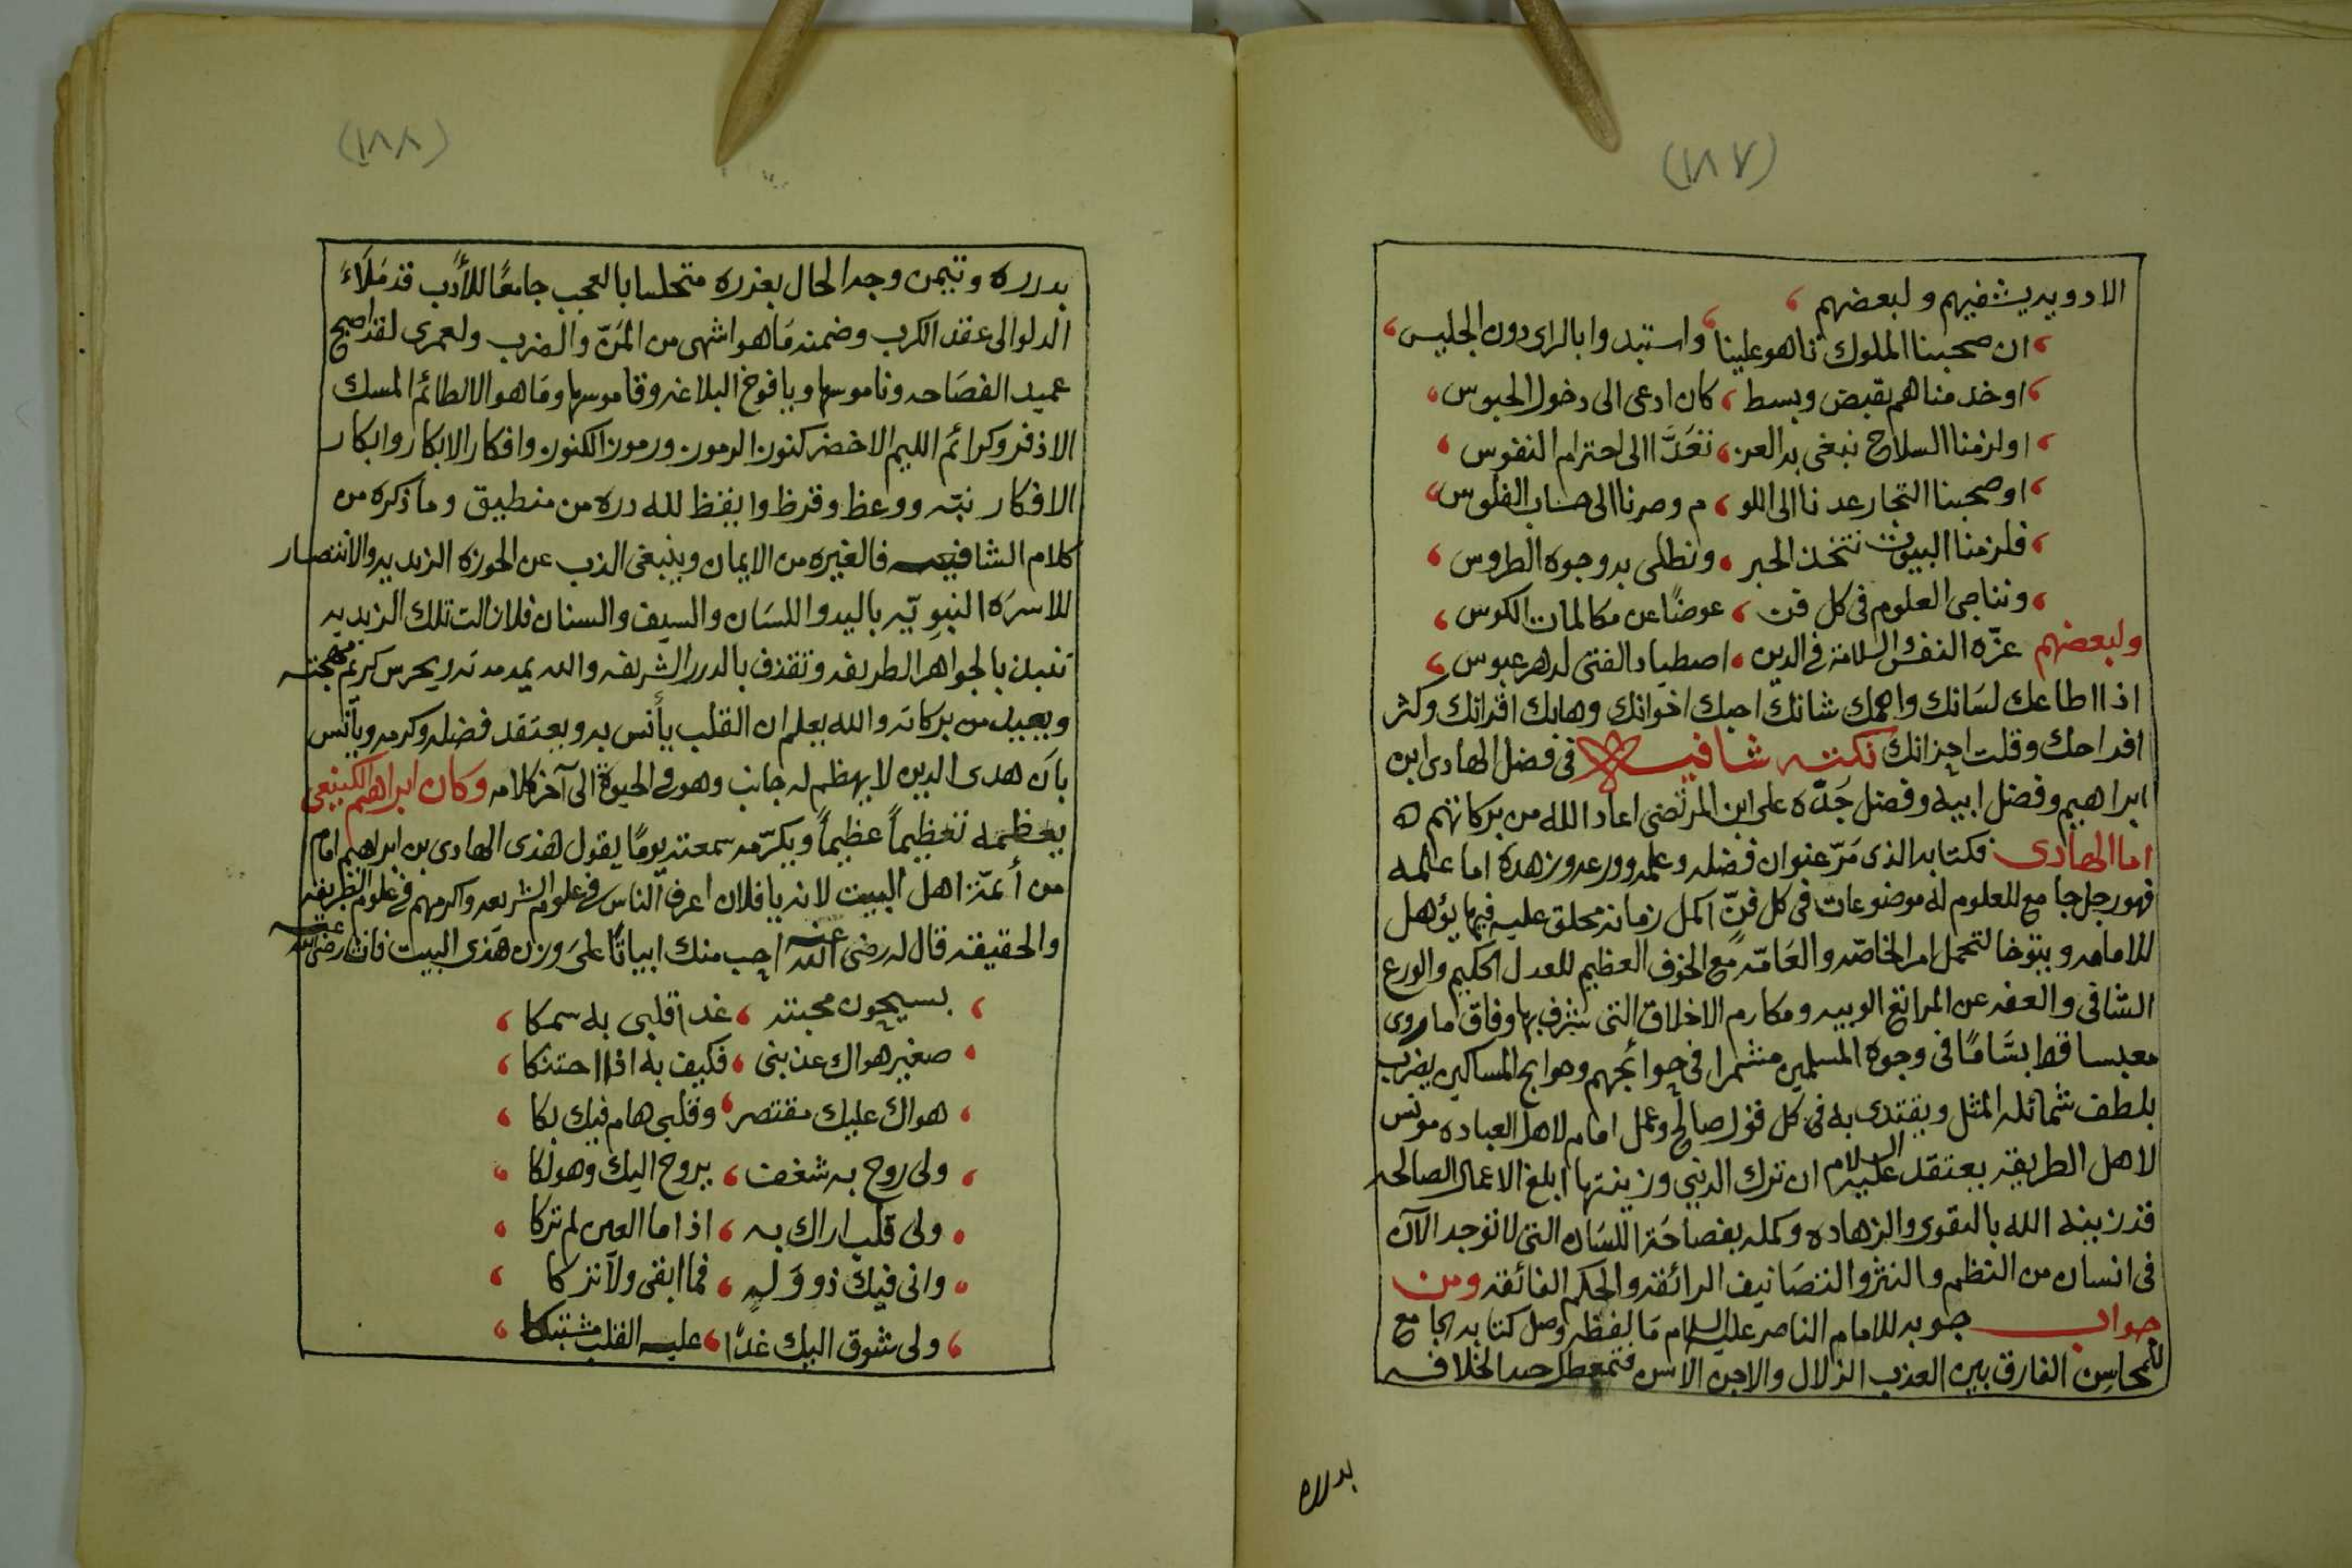 (١٨٧)
الادويه يشفيهم ولبعضهم
ان صحبنا الملوك تاهو علينا واستبدوا بالراى دون الجليس
اوخدمناهم بقبض وبسط كان ادعى الى دخول الحبوس
اولزمنا السلاح نبغى به العز نغدا الى احترام النفوس
اوصحبنا التجار عدنا الى اللو م وصرنا الى حساب الفلوس
فلزمنا البيوت نتخذ الحبر ونطلى به وجوه الطروس
ونناجى العلوم فى كل فن عوضًا عن مكالمات الكوس
ولبعضهم عزّه النفس والسلامة فى الدين اصطياد الفتى لدهر عبوس
اذا اطاعك لسَانك واهمك شانك احبك اخوانك وهابك اقرانك وكثر
افراحك وقلت احزانك نكتـه شافيـه فى فضل الهادى ابن
ابراهيم وفضل ابيه وفضل جَدّه على ابن المرتضى اعاد الله من بركاتهم
اما الهادى فكتابه الذى مَرّ عنوان فضله وعلمه وورعه وزهده اما علمه
فهو رجل جامع للعلوم له موضوعات فى كل فنّ اكمل زمانه محلق عليه فيما يؤهل
للامامه ويتوخا لتحمل امر الخاصّه والعَامّه مع الخوف العظيم للعدل الحكيم والورع
الشافى والعفه عن المراتع الوبيه ومكارم الاخلاق التى شرف بها وفاق ما روى
معبسا قط بسَّامًا فى وجوه المسلمين متشمرا فى حوائجهم وحوايج المساكين يضرب
بلطف شمائله المثل ويقتدى به فى كل قول صالح وعمل امام لاهل العباده مونس
لاهل الطريقه يعتقد عليه السلام ان ترك الدنيى وزينتها ابلغ الاعمال الصالحه
قد زينه الله بالتقوى والزهاده وكمله بفصاحَة اللسَان التى لا توجد الآن
فى انسان من النظم والنثر والتصَانيف الرائقه والحكم الفائقه ومن
جواب جوبه للامام الناصر عليه السلام مَا لفظه وصل كتابه الجامع
للمحاسِن الفارق بين العذب الزلال والاجن الاسن فتمعطل حد الخلافه
بدرره
(١٨٨)
بدرره وتيمن وجد الحال بغدره متحلسا بالعجب جامعًا للأدب قد مَلَاءَ
الدلو الى عقد الكرب وضمنه مَاهو اشهى من المَنّ والضرب ولعمرى لقد اصبح
عميد الفصَاحه وناموسها ويافوخ البلاغه وقاموسها ومَاهو الا لطائم المسك
الاذفر وكرائم اليم الاخضر كنوز الرموز ورموز الكنوز وافكار الابكار وابكار
الافكار نبّه ووعظ وقرظ وايقظ لله دره من منطيق وما ذكره من
كلام الشافعى فالغيره من الايمان وينبغى الذب عن الحوزه الزيديه والانتصار
للاسرَه النبوِيّه باليد واللسَان والسيف والسنان فلا زالت تلك الزيديه
تنبل بالجواهر الطريفه وتقذف بالدرر الشريفه والله يمد مدته ويحرس كريم مهجته
ويعيد من بركاته والله يعلم ان القلب يأنس به ويعتَقد فضله وكرمه ويأنس
بان هدى الدين لا يهظم له جانب وهو فى الحيوة الى آخر كلامه وكان ابراهيم الكينعى
يعظمه تعظيماً عظيماً ويكرّمه سمعته يومًا يقول لهذى الهادى بن ابراهيم امام
من أئمّة اهل البيت لانه يا فلان اعرف الناس فى علوم الشريعه واكرمهم فى علوم الطريقه
والحقيقه قال له رضى الله عنه احب منك ابياتًا على وزن هَذى البيت فانشا رضى الله عنه
بسيحون محبته غدا قلبى به سمكا
صغير هواك عذبنى فكيف به اذا احتنكا
هواك عليك مقتصر وقلبى هام فيك بكا
ولى روح به شغف يروح اليك وهو لكا
ولى قلب اراك به اذا ما العين لم تركا
وانى فيك ذو وَلهٍ فما ابقى ولا تركا
ولى شوق اليك غدًا عليه القلب مشتبكا